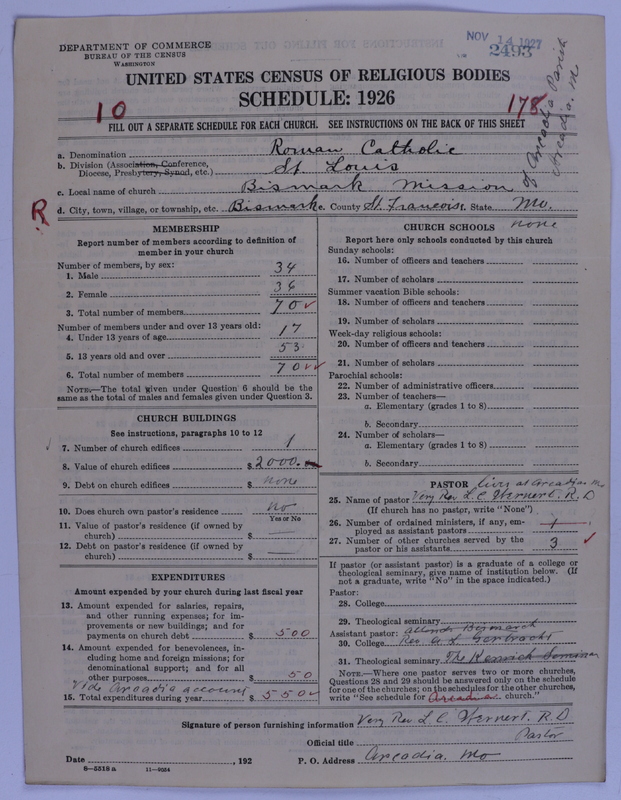 DEPARTMENT OF COMMERCE
BUREAU OF THE CENSUS
WASHINGTON
NOV 14 1927
2493
UNITED STATES CENSUS OF RELIGIOUS BODIES
SCHEDULE: 1926
10
178
of Arcadia Parish
Arcadia. Mo
FILL OUT A SEPARATE SCHEDULE FOR EACH CHURCH. SEE INSTRUCTIONS ON THE BACK OF THIS SHEET
a. Denomination Roman Catholic
b. Division (Association, Conference, Diocese, Presbytery, Synod, etc.) St Louis
c. Local name of church Bismark Mission
R
d. City, town, village, or township, etc. Bismark e. County St. Francois f. State Mo.
MEMBERSHIP
Report number of members according to definition of
member in your church
Number of members, by sex:
1. Male 34
2. Female 36
3. Total number of members 70
Number of members under and over 13 years old:
4. Under 13 years of age 17
5. 13 years old and over 53
6. Total number of members 70
NOTE.—The total given under Question 6 should be the
same as the total of males and females given under Question 3.
CHURCH BUILDINGS
See instructions, paragraphs 10 to 12
7. Number of church edifices 1
8. Value of church edifices $ 2000.
9. Debt on church edifices $ none
10. Does church own pastor's residence? no
Yes or No
11. Value of pastor's residence (if owned by
church) $
12. Debt on pastor's residence (if owned by
church) $
EXPENDITURES
Amount expended by your church during last fiscal year
13. Amount expended for salaries, repairs,
and other running expenses; for im-
provements or new buildings; and for
payments on church debt $ 500
14. Amount expended for benevolences, in-
cluding home and foreign missions; for
denominational support; and for all
other purposes $ 50
Vide Arcadia account
15. Total expenditures during year $ 550
CHURCH SCHOOLS
none
Report here only schools conducted by this church
Sunday schools:
16. Number of officers and teachers
17. Number of scholars
Summer vacation Bible schools:
18. Number of officers and teachers
19. Number of scholars
Week-day religious schools:
20. Number of officers and teachers
21. Number of scholars
Parochial schools:
22. Number of administrative officers
23. Number of teachers—
a. Elementary (grades 1 to 8)
b. Secondary
24. Number of scholars—
a. Elementary (grades 1 to 8)
b. Secondary
PASTOR lives at Arcadia. Mo
25. Name of pastor Very Rev L. C. Wernert. R. D
(If church has no pastor, write "None")
26. Number of ordained ministers, if any, em-
ployed as assistant pastors 1
27. Number of other churches served by the
pastor or his assistants 3
If pastor (or assistant pastor) is a graduate of a college or
theological seminary, give name of institution below. (If
not a graduate, write "No" in the space indicated.)
Pastor:
28. College
29. Theological seminary
Assistant pastor: attends Bismarck
30. College Rev. A. L.
31. Theological seminary The Kenrick Seminary
NOTE.—Where one pastor serves two or more churches,
Questions 28 and 29 should be answered only on the schedule
for one of the churches; on the schedules for the other churches,
write "See schedule for Arcadia church."
Signature of person furnishing information Very Rev L. C. Wernert. R. D
Official title Pastor
Date , 192 P. O. Address Arcadia. Mo
8—5518 a 11—9054